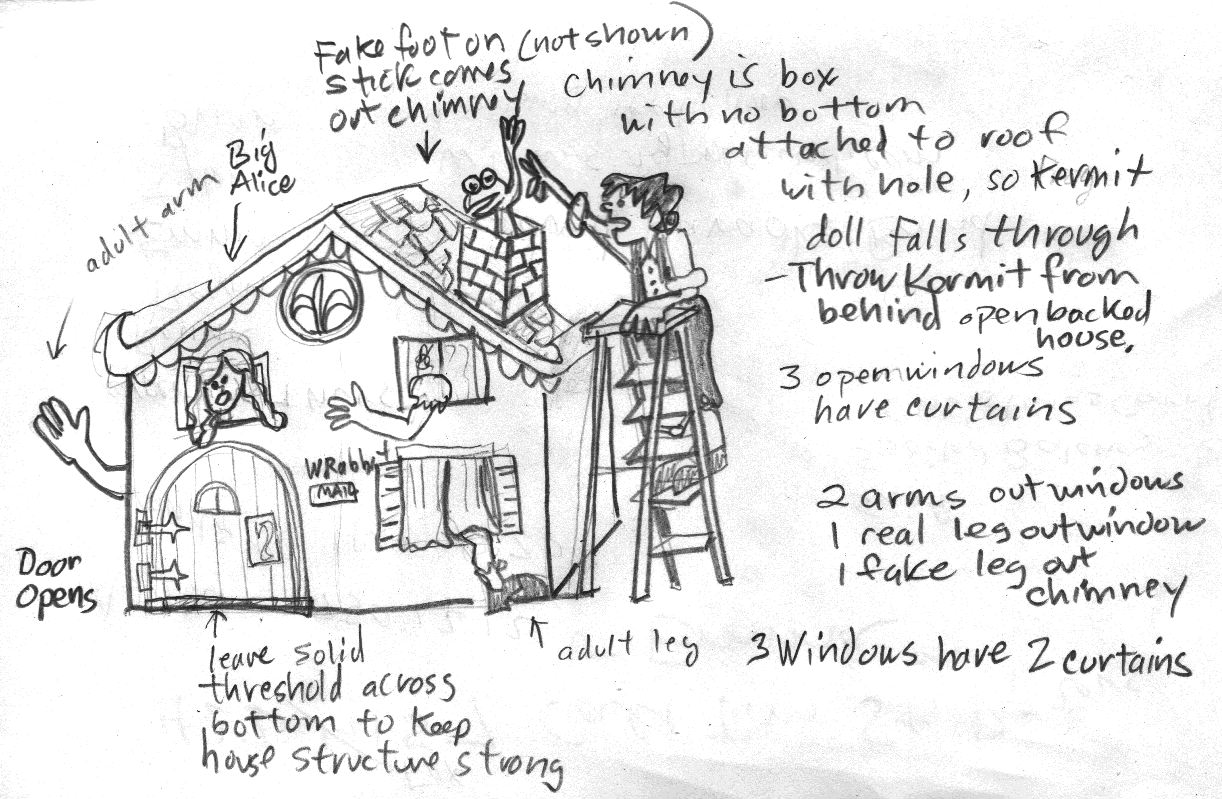 Fake foot on (not shown)
stick comes
out chimney
chimney is box
with no bottom
attached to roof
with hole, so Kermit
doll falls through
- Throw Kermit from
behind open backed
house.
3 open windows
have curtains
2 arms out windows
1 real leg out window
1 fake leg out
chimney
3 Windows have 2 curtains
Big
Alice
adult arm
W Rabbit
MAIL
2
Door
Opens
leave solid
threshold across
bottom to keep
house structure strong
adult leg